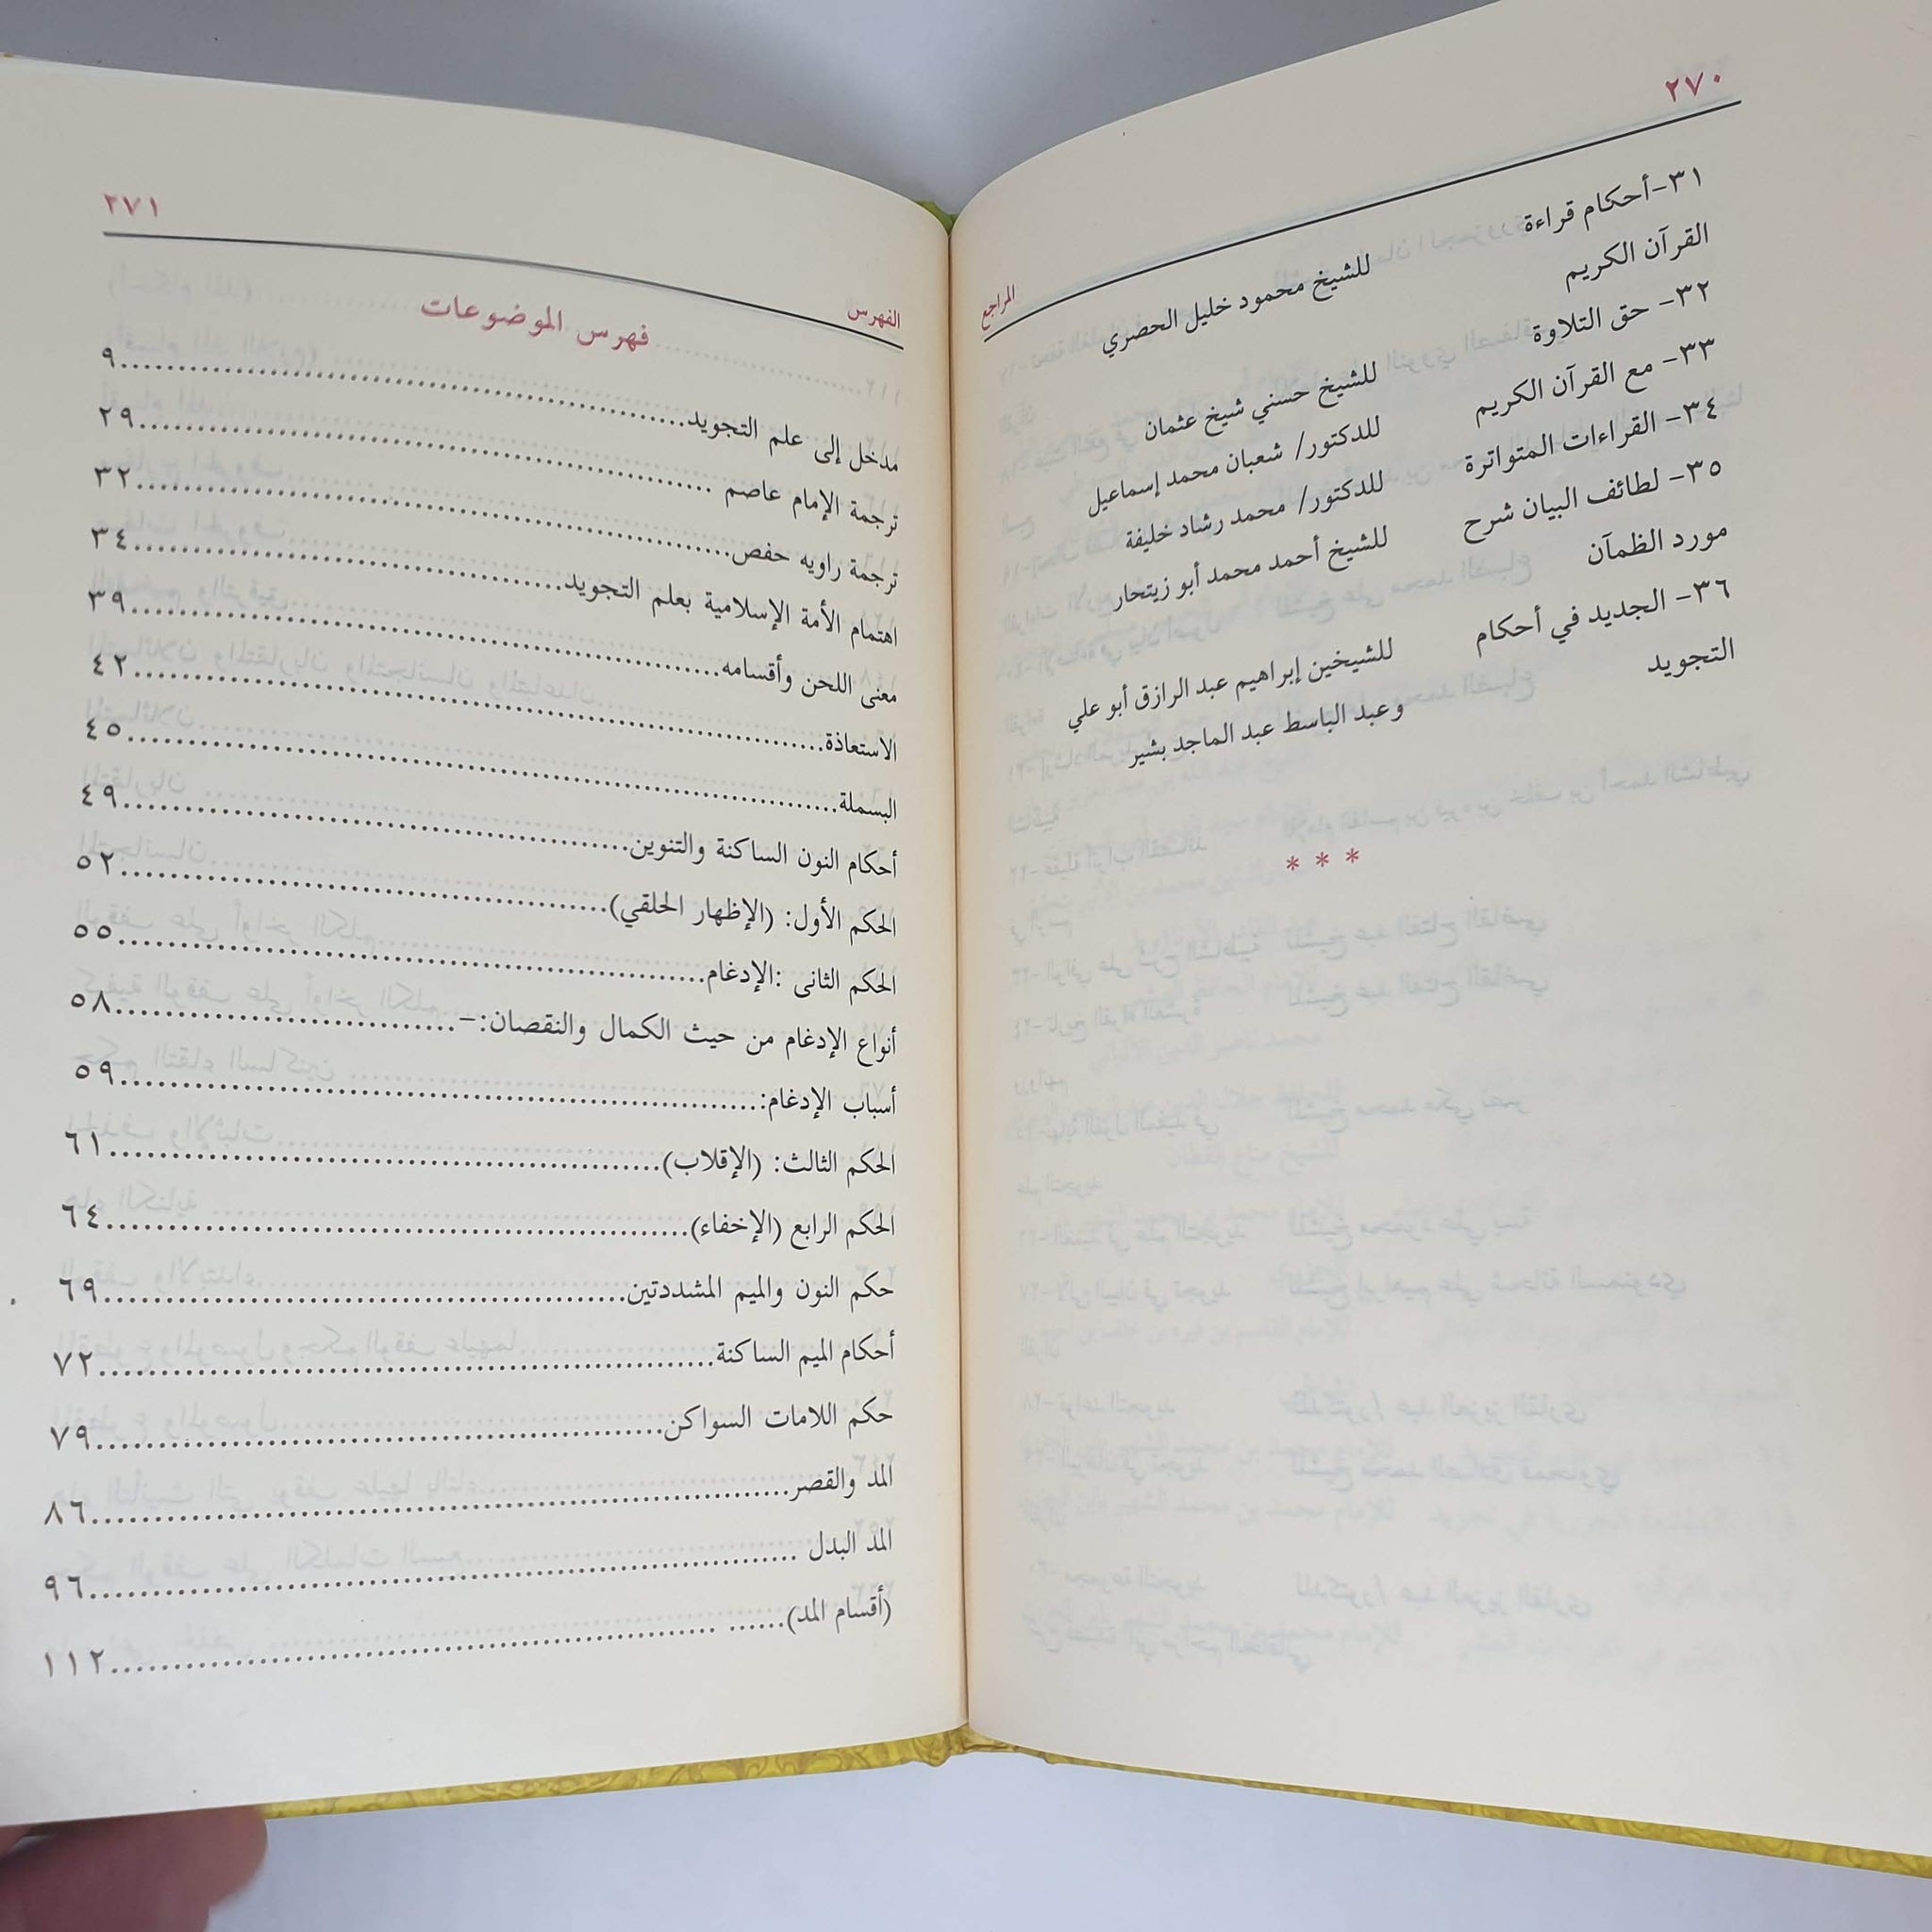 ٢٧٠
المراجع
٣١-أحكام قراءة
القرآن الكريم للشيخ محمود خليل الحصري
٣٢- حق التلاوة للشيخ حسني شيخ عثمان
٣٣- مع القرآن الكريم للدكتور/ شعبان محمد إسماعيل
٣٤- القراءات المتواترة للدكتور/ محمد رشاد خليفة
٣٥- لطائف البيان شرح للشيخ أحمد محمد أبو زيتحار
مورد الظمآن
٣٦- الجديد في أحكام للشيخين إبراهيم عبد الرازق أبو علي
التجويد وعبد الباسط عبد الماجد بشير
* * *
الفهرس ٢٧١
فهرس الموضوعات
مدخل إلى علم التجويد ٩
ترجمة الإمام عاصم ٢٩
ترجمة راويه حفص ٣٢
اهتمام الأمة الإسلامية بعلم التجويد ٣٤
معنى اللحن وأقسامه ٣٩
الاستعاذة ٤٢
البسملة ٤٥
أحكام النون الساكنة والتنوين ٤٩
الحكم الأول: (الإظهار الحلقي) ٥٢
الحكم الثانى :الإدغام ٥٥
أنواع الإدغام من حيث الكمال والنقصان:- ٥٨
أسباب الإدغام: ٥٩
الحكم الثالث: (الإقلاب) ٦١
الحكم الرابع (الإخفاء) ٦٤
حكم النون والميم المشددتين ٦٩
أحكام الميم الساكنة ٧٢
حكم اللامات السواكن ٧٩
المد والقصر ٨٦
المد البدل ٩٦
(أقسام المد) ١١٢